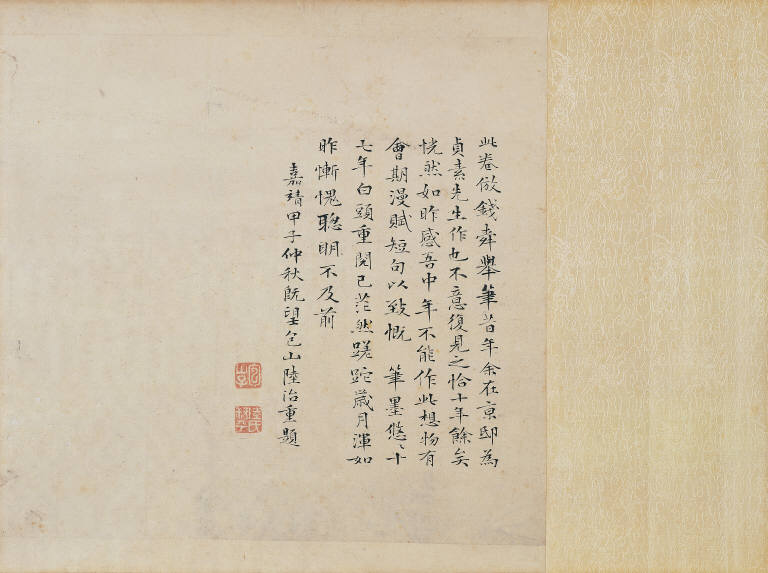 此卷倣錢舜舉筆昔年余在京邸為
貞素先生作也不意復見之恰十年餘矣
恍然如昨感吾中年不能作此想物有
會期漫賦短句以致慨 筆墨悠〻十
七年白頭重閱已茫然蹉跎歲月渾如
昨慚愧聰明不及前
嘉靖甲子仲秋既望包山陸治重題
包山子
陸氏叔平